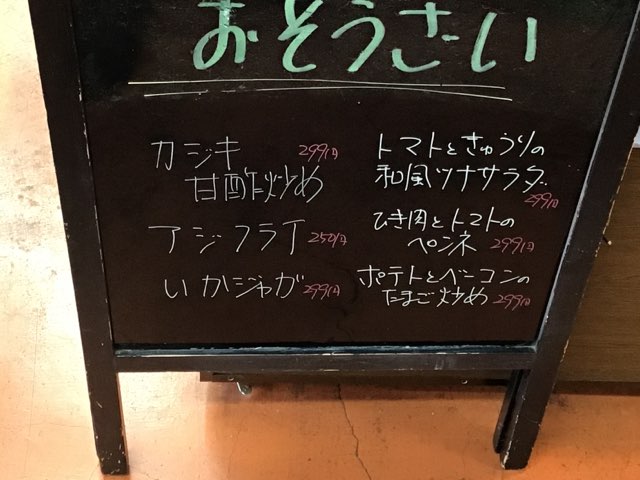 おそうざい
カジキ 299円
甘酢炒め
アジフライ 250円
いかジャガ 299円
トマトときゅうりの
和風ツナサラダ
299円
ひき肉とトマトの
ペンネ 299円
ポテトとベーコンの
たまご炒め 299円